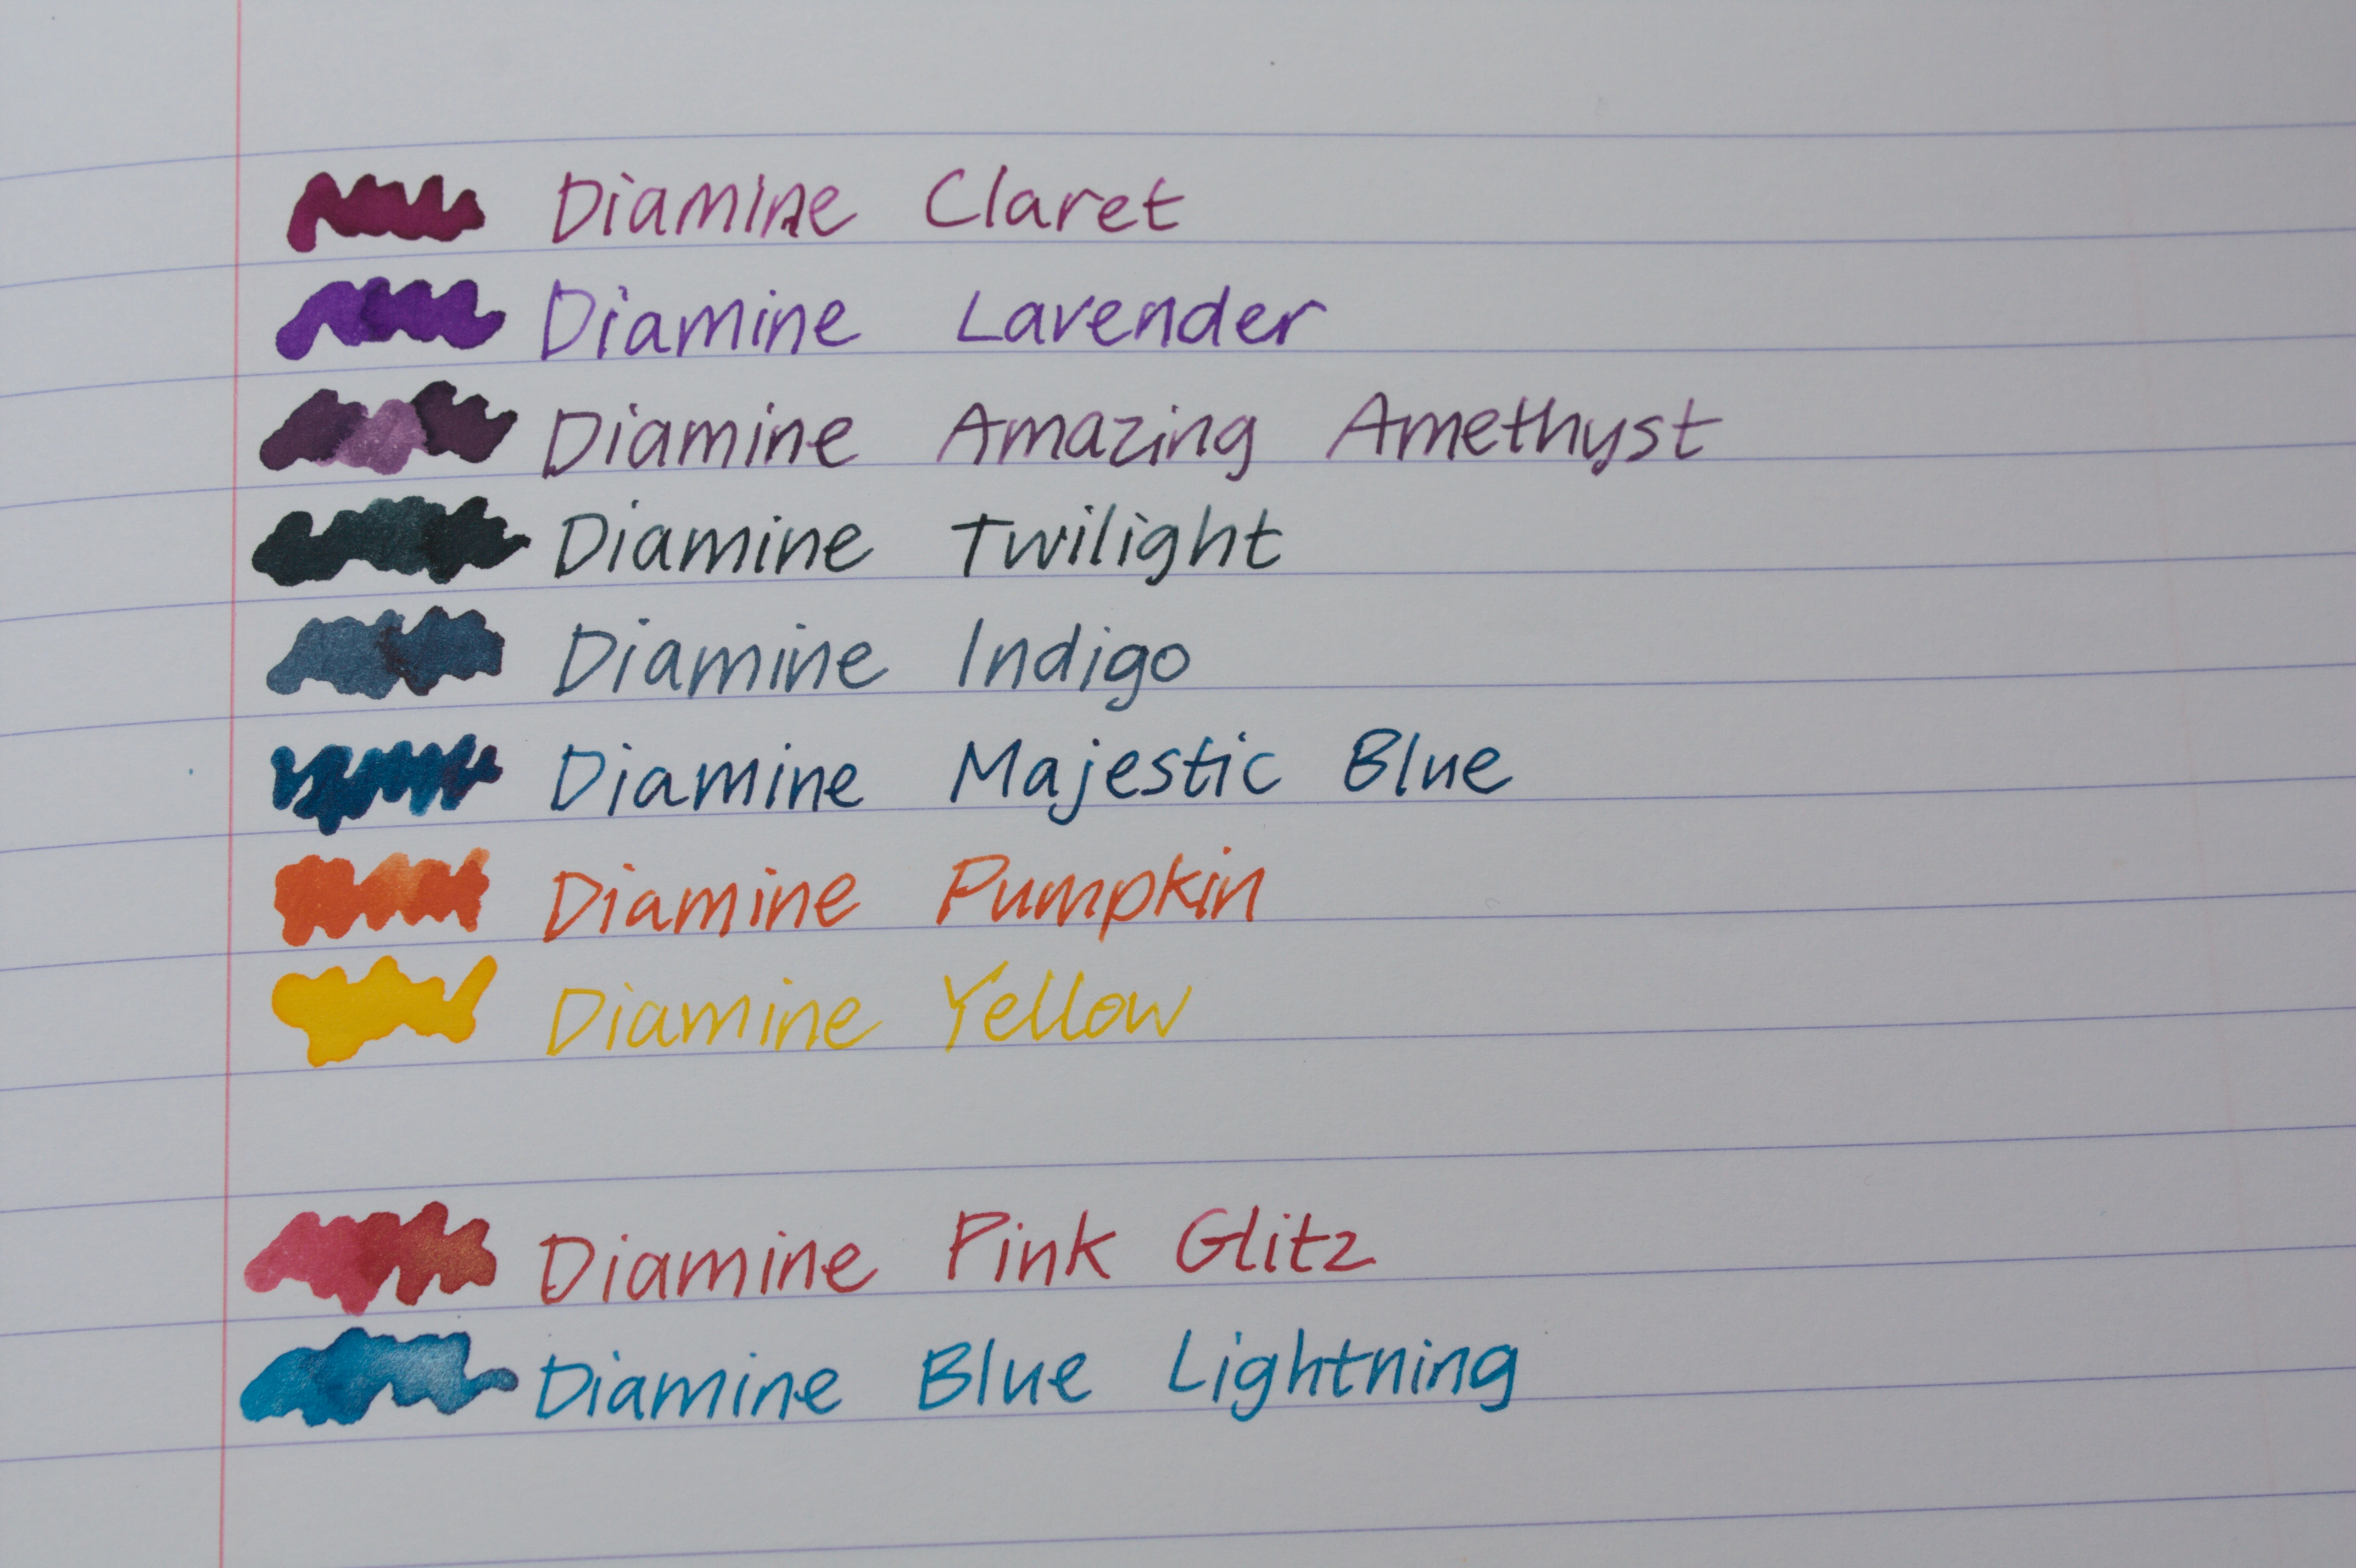 Diamine Claret
Diamine Lavender
Diamine Amazing Amethyst
Diamine Twilight
Diamine Indigo
Diamine Majestic Blue
Diamine Pumpkin
Diamine Yellow
Diamine Pink Glitz
Diamine Blue Lightning